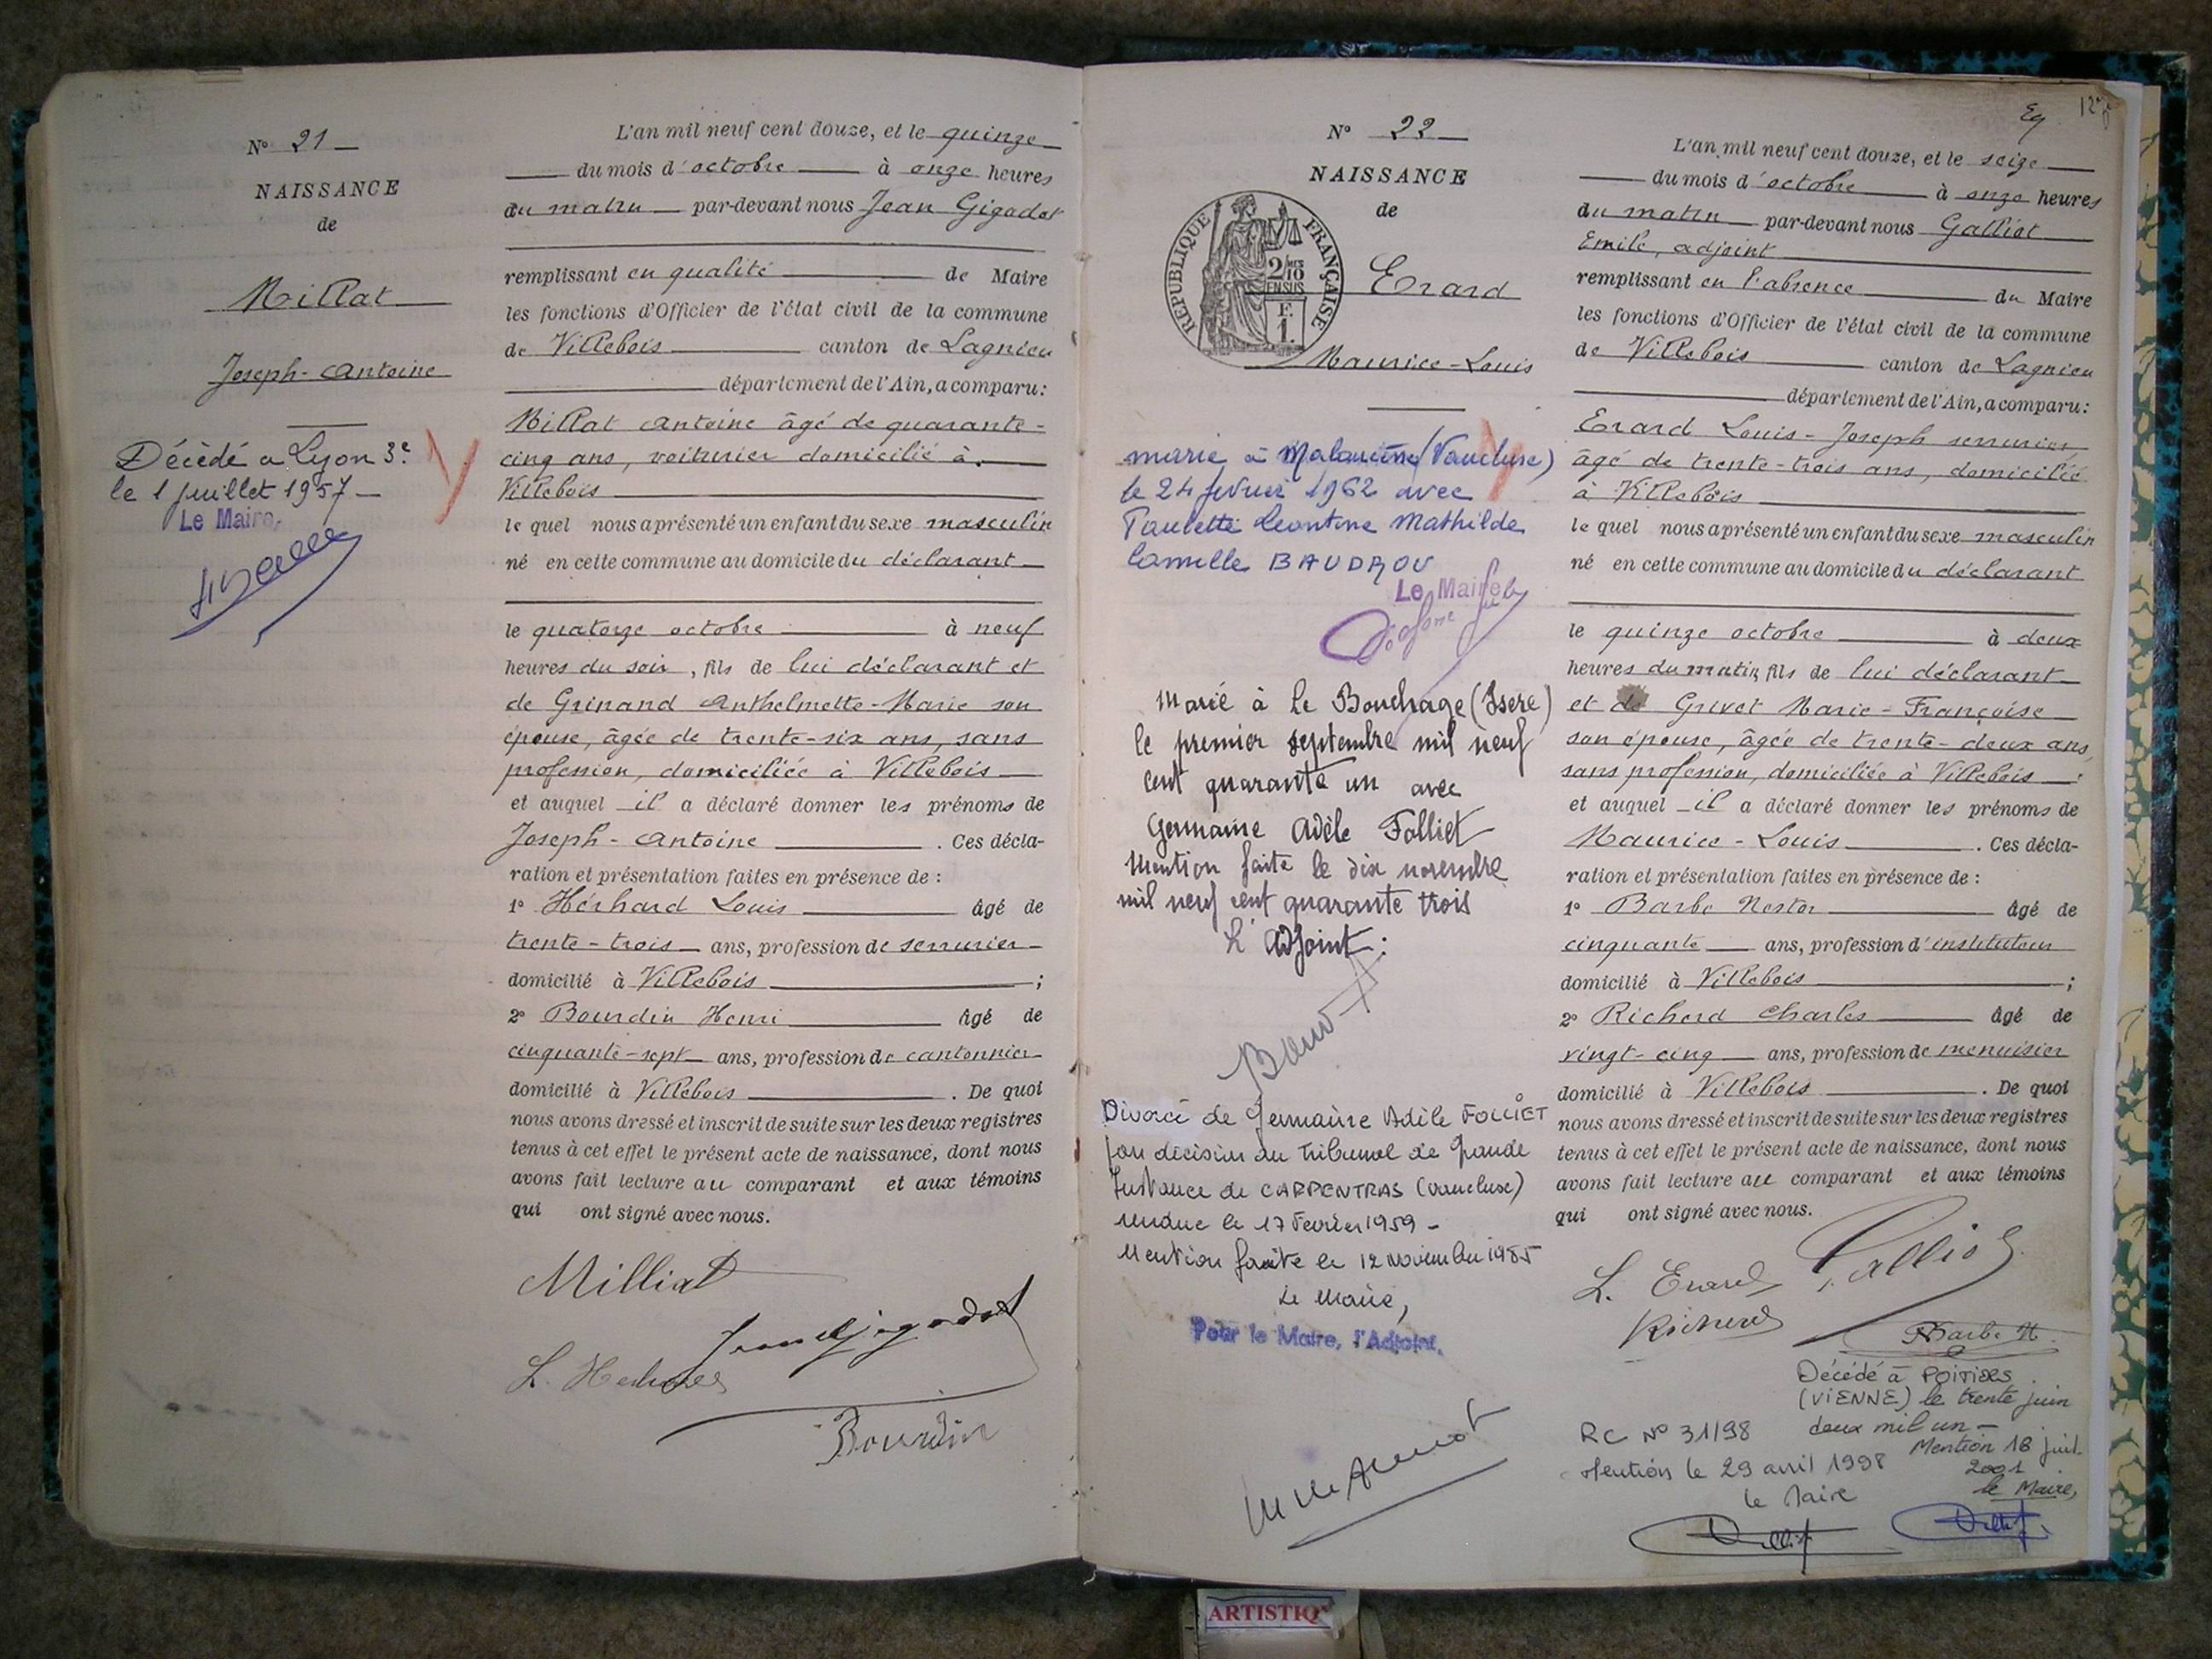 N° 21
NAISSANCE
de
Millat
Joseph-Antoine
Décédé a Lyon 3e
le 1 Juillet 1957
Le Maire,
L'an mil neuf cent douze, et le quinze
du mois d'octobre à onze heures
du matin par-devant nous Jean Gigodot
remplissant en qualité de Maire
les fonctions d'Officier de l'état civil de la commune
de Villebois canton de Lagnieu
département de l'Ain, a comparu:
Millat Antoine âgé de quarante-
cinq ans, voiturier domicilié à
Villebois
le quel nous a présenté un enfant du sexe masculin
né en cette commune au domicile du déclarant
le quatorze octobre à neuf
heures du soir, fils de lui déclarant et
de Grinand Anthelmette-Marie son
épouse, âgée de trente-six ans, sans
profession, domiciliée à Villebois
et auquel il a déclaré donner les prénoms de
Joseph-Antoine. Ces décla-
ration et présentation faites en présence de :
1° Hérhard Louis âgé de
trente-trois ans, profession de serrurier
domicilié à Villebois ;
2° Bourdin Henri âgé de
cinquante-sept ans, profession de cantonnier
domicilié à Villebois. De quoi
nous avons dressé et inscrit de suite sur les deux registres
tenus à cet effet le présent acte de naissance, dont nous
avons fait lecture au comparant et aux témoins
qui ont signé avec nous.
Milliat
Jean Gigodot
Bourdin
Eg
N° 22
NAISSANCE
de
REPUBLIQUE FRANÇAISE
2/10
EN SUS
F.
1.
Erard
Maurice-Louis
marié à Malaucène (Vaucluse)
le 24 février 1962 avec
Paulette Leontine Mathilde
Camille BAUDROU
Le Maire
Marié à Le Bouchage (Isère)
le premier septembre mil neuf
cent quarante un avec
Germaine Adèle Folliet
Mention faite le dix novembre
mil neuf cent quarante trois
L'Adjoint :
Divorcé de Germaine Adèle FOLLIET
par décision du Tribunal de Grande
Instance de CARPENTRAS (Vaucluse)
rendue le 17 Février 1959 -
Mention faite le 12 novembre 1985
Le Maire,
Pour le Maire, l'Adjoint,
L'an mil neuf cent douze, et le seize
du mois d'octobre à onze heures
du matin par-devant nous Galliot
Emile, adjoint
remplissant en l'absence du Maire
les fonctions d'Officier de l'état civil de la commune
de Villebois canton de Lagnieu
département de l'Ain, a comparu:
Erard Louis-Joseph serrurier,
âgé de trente-trois ans, domicilié
à Villebois
le quel nous a présenté un enfant du sexe masculin
né en cette commune au domicile du déclarant
le quinze octobre à deux
heures du matin, fils de lui déclarant
et de Grivet Marie-Françoise
son épouse, âgée de trente-deux ans,
sans profession, domiciliée à Villebois
et auquel il a déclaré donner les prénoms de
Maurice-Louis. Ces décla-
ration et présentation faites en présence de :
1° Barbe Nestor âgé de
cinquante ans, profession d'instituteur
domicilié à Villebois ;
2° Richerd Charles âgé de
vingt-cinq ans, profession de menuisier
domicilié à Villebois. De quoi
nous avons dressé et inscrit de suite sur les deux registres
tenus à cet effet le présent acte de naissance, dont nous
avons fait lecture au comparant et aux témoins
qui ont signé avec nous.
L. Erard
Galliot
Richerd
Barbe N.
Décédé à POITIERS
(VIENNE) le trente juin
deux mil un -
Mention 18 juil.
2001
le Maire,
RC N° 31/98
Mention le 29 avril 1998
le Maire
ARTISTIQ